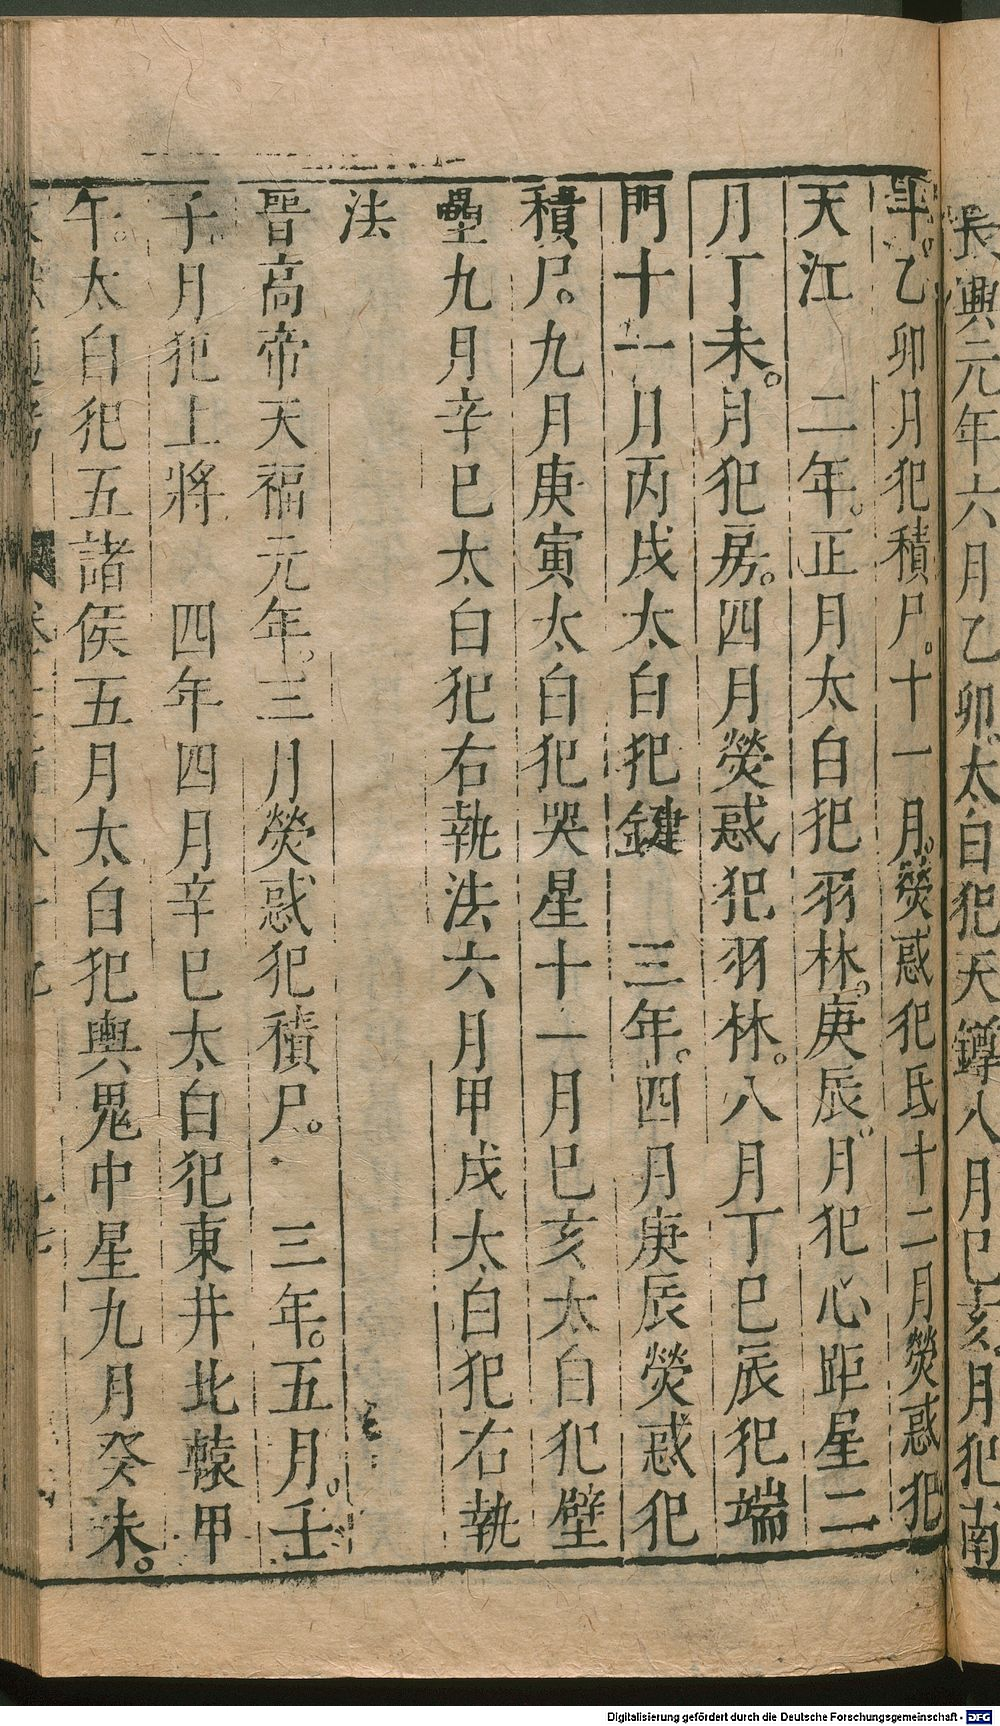 長興元年六月乙卯太白犯天罇八月巳亥月犯南
斗乙卯月犯積尸十一月熒惑犯氐十二月熒惑犯
天江　二年正月太白犯羽林庚辰月犯心距星二
月丁未月犯房四月熒惑犯羽林八月丁巳辰犯端
門十一月丙戌太白犯鍵　三年四月庚辰熒惑犯
積尸九月庚寅太白犯哭星十一月巳亥太白犯壁
壘九月辛巳太白犯右執法六月甲戌太白犯右執
法
晉高帝天福元年三月熒惑犯積尸　三年五月壬
子月犯上將　四年四月辛巳太白犯東井北轅甲
午太白犯五諸侯五月太白犯輿鬼中星九月癸未
Digitalisierung gefördert durch die Deutsche Forschungsgemeinschaft - DFG